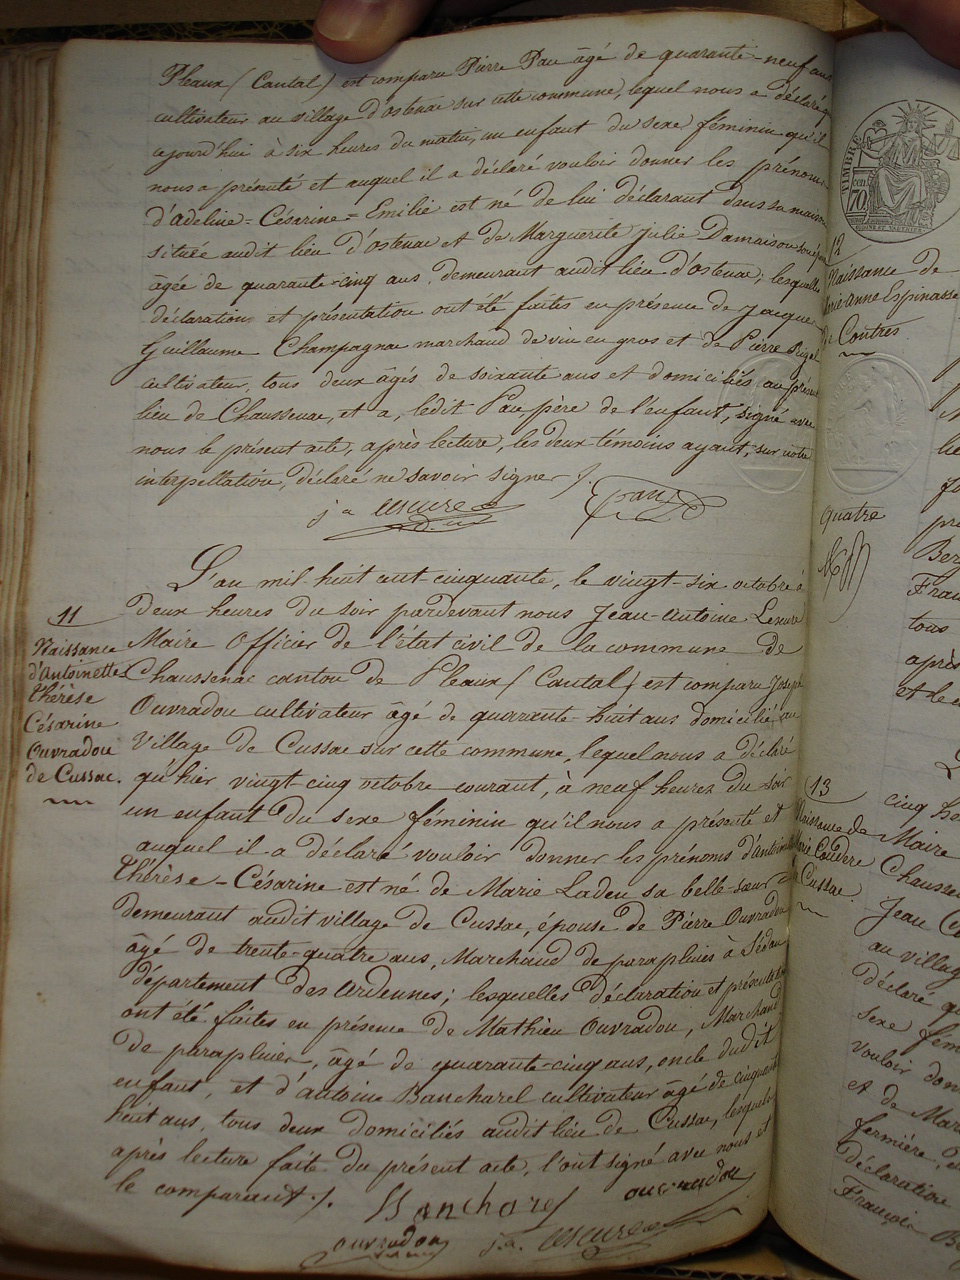 Pleaux (Cantal) est comparu Pierre Pau âgé de quarante-neuf ans
cultivateur au village d'ostenac sur cette commune, lequel nous a déclaré que
cejourd'hui à six heures du matin, un enfant du sexe féminin qu'il
nous a présenté et auquel il a déclaré vouloir donner les prénoms
d'Adeline=Césarine=Emilie est né de lui déclarant dans sa maison
située audit lieu d'ostenac et de Marguerite julie Damaison son épouse
âgée de quarante-cinq ans, demeurant audit lieu d'ostenac; lesquelles
déclaration et présentation ont été faites en présence de jacques
Guillaume Champagnac marchand de vin en gros et de Pierre Rigal
cultivateur, tous deux âgés de soixante ans et domiciliés au présent
lieu de Chaussenac, et a, ledit Pau, père de l'enfant, signé avec
nous le présent acte, après lecture, les deux témoins ayant, sur notre
interpellation, déclaré ne savoir signer ./.
j a Lescure
Pau
11
Naissance
d'Antoinette
thérèse
Césarine
Ouvradou
de Cussac.
L'an mil huit cent-cinquante, le vingt-six octobre à
deux heures du soir pardevant nous Jean-Antoine Lescure
Maire officier de l'état civil de la commune de
Chaussenac canton de Pleaux (Cantal) est comparu Joseph
Ouvradou cultivateur âgé de quarante-huit ans domicilié au
village de Cussac sur cette commune, lequel nous a déclaré
qu'hier vingt-cinq octobre courant, à neuf heures du soir
un enfant du sexe féminin qu'il nous a présenté et
auquel il a déclaré vouloir donner les prénoms d'Antoinette
thérèse-Césarine est né de Marie Ladeu sa belle-sœur
demeurant audit village de Cussac, épouse de Pierre Ouvradou
âgé de trente-quatre ans, Marchand de parapluies à Sédan
département des Ardennes; lesquelles déclaration et présentation
ont été faites en présence de Mathieu Ouvradou, Marchand
de parapluies, âgé de quarante-cinq ans, oncle dudit
enfant, et d'antoine Bancharel cultivateur âgé de cinquante
huit ans, tous deux domiciliés audit lieu de Cussac, lesquels
après lecture faite du présent acte, l'ont signé avec nous et
le comparant ./.
Bancharel
ouvradou
ouvradou
j.a. Lescure
TIMBRE
70
12
Naissance de
Marie-Anne Espinasse
de Contres
quatre
Ber
Fran
tous
après
et le c
13
Naissance de
Marie Coudère
à Cussac.
cinq he
Maire
Chausse
Jean C
au villag
déclaré q
sexe fém
vouloir don
et de Mar
fermière,
déclaration
François B